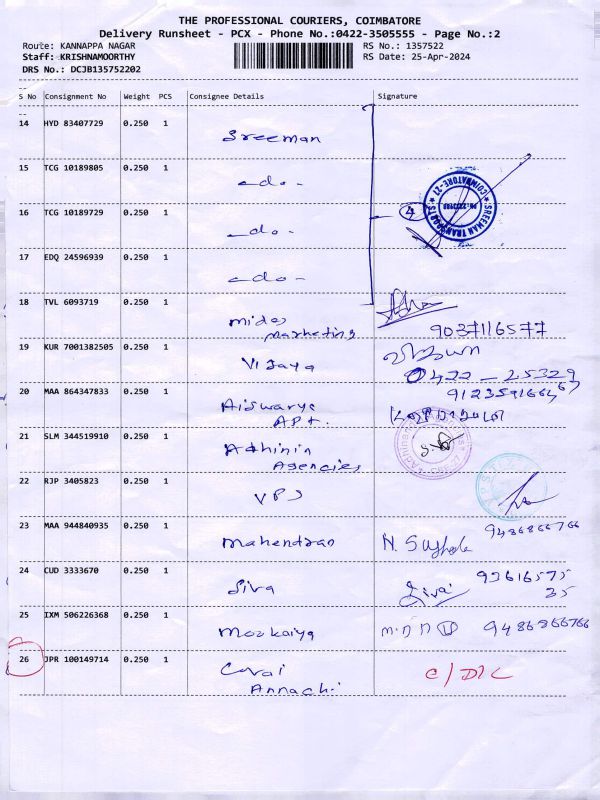 THE PROFESSIONAL COURIERS, COIMBATORE
Delivery Runsheet - PCX - Phone No.:0422-3505555 - Page No.:2
Route: KANNAPPA NAGAR RS No.: 1357522
Staff: KRISHNAMOORTHY RS Date: 25-Apr-2024
DRS No.: DCJB135752202
S No Consignment No Weight PCS Consignee Details Signature
14 HYD 83407729 0.250 1 Sreeman
15 TCG 10189805 0.250 1 -do-
16 TCG 10189729 0.250 1 -do- 4
17 EDQ 24596939 0.250 1 -do-
18 TVL 6093719 0.250 1 Midas
Marketing 9037116577
19 KUR 7001382505 0.250 1 Vijaya
0422-25329
20 MAA 864347833 0.250 1 Aiswarya
APt.
21 SLM 344519910 0.250 1 Adhinin
Agencies
22 RJP 3405823 0.250 1 VPS
23 MAA 944840935 0.250 1 Mahendran N. 9486866766
24 CUD 3333670 0.250 1 Siva Siva 93616575
35
25 IXM 506226368 0.250 1 9486866766
26 JPR 100149714 0.250 1 Covai
Annachi C/DIC